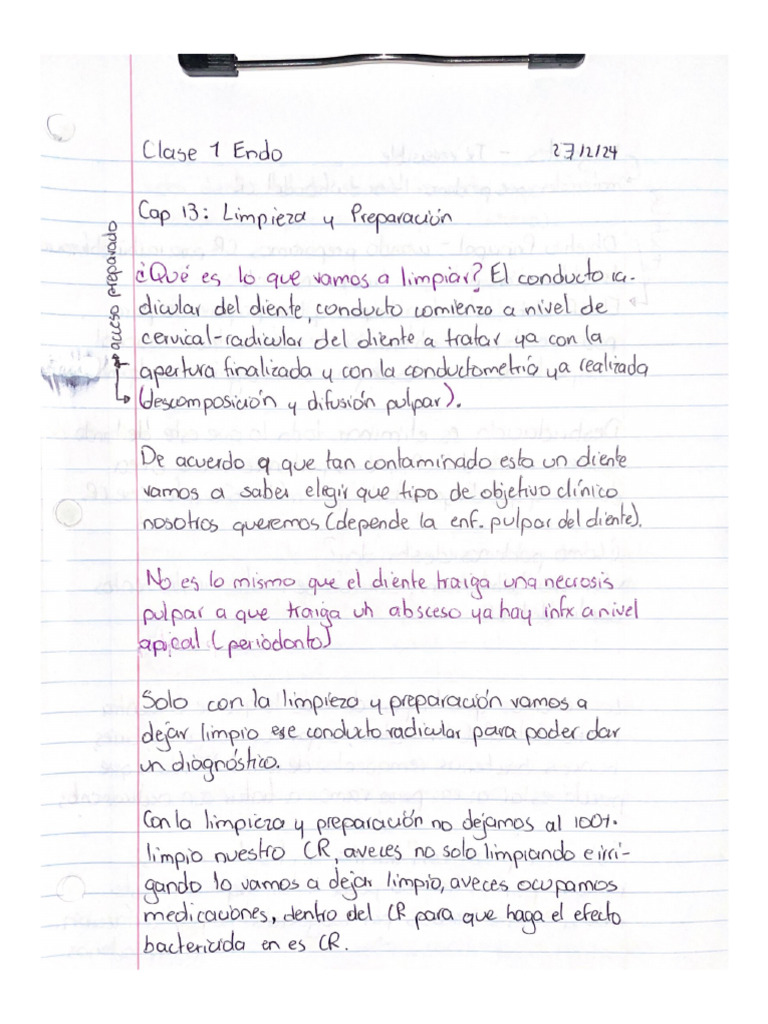 Clase 1 Endo 27/2/24
Cap 13: Limpieza y Preparación
acceso preparado
¿Qué es lo que vamos a limpiar? El conducto ra-
dicular del diente, conducto comienza a nivel de
cervical-radicular del diente a tratar ya con la
apertura finalizada y con la conductometría ya realizada
(descomposición y difusión pulpar).
De acuerdo a que tan contaminado esta un diente
vamos a saber elegir que tipo de objetivo clínico
nosotros queremos (depende la enf. pulpar del diente).
No es lo mismo que el diente traiga una necrosis
pulpar a que traiga un absceso ya hay infx a nivel
apical (periodonto)
Solo con la limpieza y preparación vamos a
dejar limpio ese conducto radicular para poder dar
un diagnóstico.
Con la limpieza y preparación no dejamos al 100%
limpio nuestro CR, aveces no solo limpiando e irri-
gando lo vamos a dejar limpio, aveces ocupamos
medicaciones, dentro del CR para que haga el efecto
bactericida en es CR.